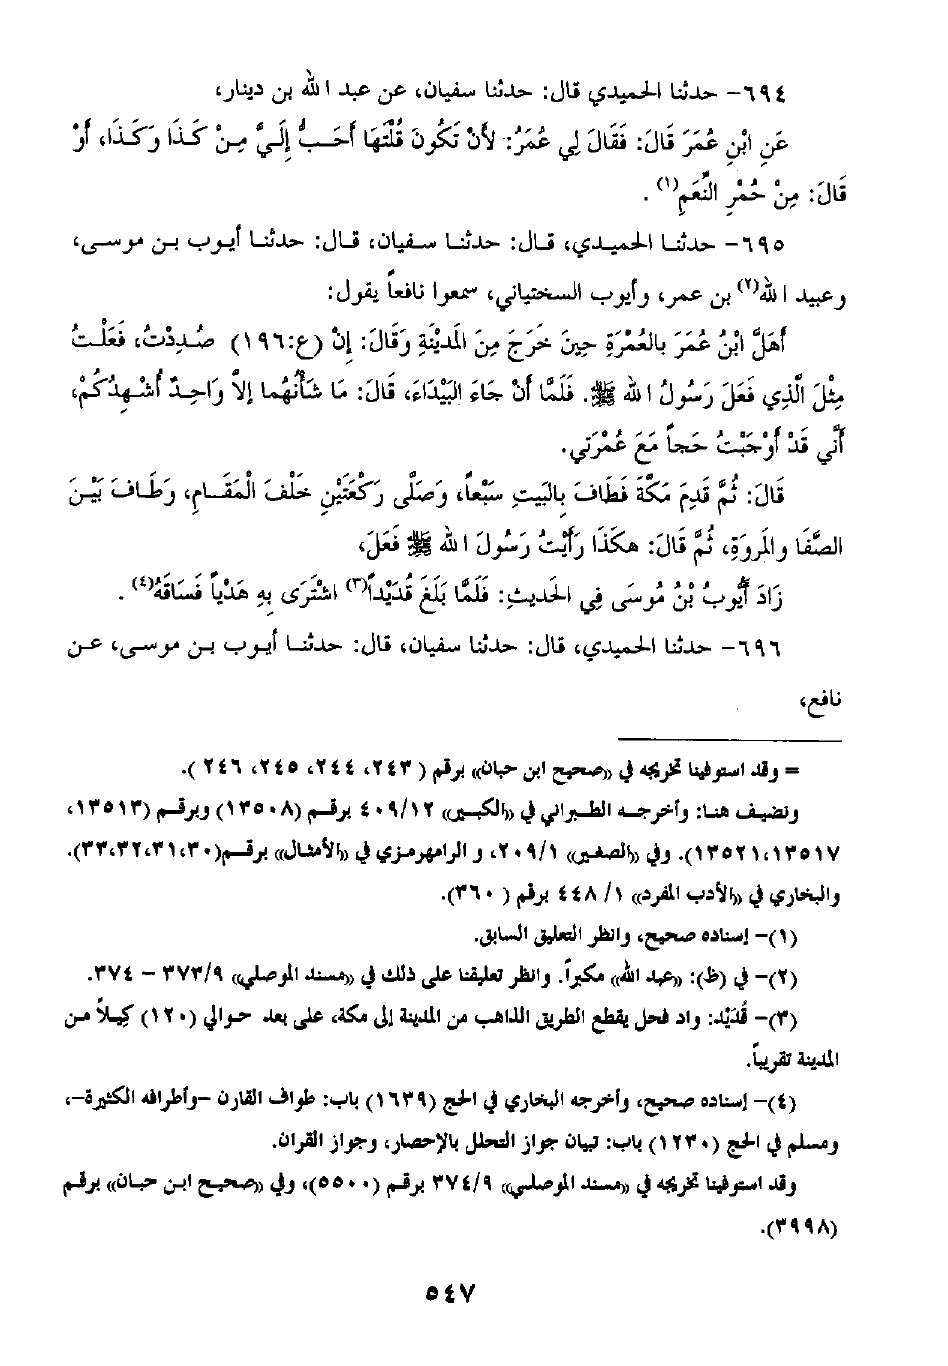 ٦٩٤- حدثنا الحميدي قال: حدثنا سفيان، عن عبد الله بن دينار،
عَنِ ابْنِ عُمَرَ قَالَ: فَقَالَ لِي عُمَرُ: لأَنْ تَكُونَ قُلْتَهَا أَحَبُّ إِلَيَّ مِنْ كَذَا وَكَذَا، أَوْ
قَالَ: مِنْ حُمْرِ النَّعَمِ(١) .
٦٩٥- حدثنا الحميدي، قال: حدثنا سفيان، قال: حدثنا أيوب بن موسى،
وعبيد الله(٢) بن عمر، وأيوب السختياني، سمعوا نافعاً يقول:
أَهَلَّ ابْنُ عُمَرَ بالعُمْرَةِ حِينَ خَرَجَ مِنَ المَدِينَةِ وَقَالَ: إِنْ (ع:١٩٦) صُدِدْتُ، فَعَلْتُ
مِثْلَ الَّذِي فَعَلَ رَسُولُ الله ﷺ. فَلَمَّا أَنْ جَاءَ البَيْدَاءَ، قَالَ: مَا شَأْنُهُما إِلاَّ وَاحِدٌ أُشْهِدُكُمْ،
أَنِّي قَدْ أَوْجَبْتُ حَجاً مَعَ عُمْرَتِي.
قَالَ: ثُمَّ قَدِمَ مَكَّةَ فَطَافَ بِالبَيتِ سَبْعاً، وَصَلَّى رَكْعَتَيْنِ خَلْفَ الْمَقَامِ، وَطَافَ بَيْنَ
الصَّفَا والمَروَةِ، ثُمَّ قَالَ: هكَذَا رَأَيْتُ رَسُولَ الله ﷺ فَعَلَ،
زَادَ أَيُّوبُ بْنُ مُوسَى فِي الحَديثِ: فَلَمَّا بَلَغَ قُدَيْداً(٣) اشْتَرَى بِهِ هَدْياً فَسَاقَهُ(٤) .
٦٩٦- حدثنا الحميدي، قال: حدثنا سفيان، قال: حدثنا أيوب بن موسى، عن
نافع،
= وقد استوفينا تخريجه في «صحيح ابن حبان» برقم ( ٢٤٣، ٢٤٤، ٢٤٥، ٢٤٦ ).
ونضيف هنا: وأخرجه الطبراني في «الكبير» ٤٠٩/١٢ برقم (١٣٥٠٨) وبرقم (١٣٥١٣،
١٣٥٢١،١٣٥١٧). وفي «الصغير» ٢٠٩/١، و الرامهرمزي في «الأمثال» برقم(٣٣،٣٢،٣١،٣٠).
والبخاري في «الأدب المفرد» ١/ ٤٤٨ برقم ( ٣٦٠).
(١)- إسناده صحيح، وانظر التعليق السابق.
(٢)- في (ظ): «عبد الله» مكبراً. وانظر تعليقنا على ذلك في «مسند الموصلي» ٣٧٣/٩ - ٣٧٤.
(٣)- قُدَيْد: واد فحل يقطع الطريق الذاهب من المدينة إلى مكة، على بعد حوالي (١٢٠) كيلاً من
المدينة تقريباً.
(٤)- إسناده صحيح، وأخرجه البخاري في الحج (١٦٣٩) باب: طواف القارن -وأطرافه الكثيرة-،
ومسلم في الحج (١٢٣٠) باب: تبيان جواز التحلل بالإحصار، وجواز القران.
وقد استوفينا تخريجه في «مسند الموصلي» ٣٧٤/٩ برقم (٥٥٠٠)، وفي «صحيح ابن حبان» برقم
(٣٩٩٨).
٥٤٧